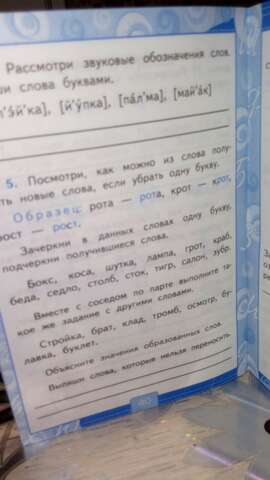 Рассмотри звуковые обозначения слов.
ши слова буквами.
'э́й'ка], [й'у́пка], [па́л'ма], [май'а́к]
5. Посмотри, как можно из слова полу-
ть новые слова, если убрать одну букву.
Образец: рота — рота, крот — крот,
рост — рост.
Зачеркни в данных словах одну букву,
подчеркни получившиеся слова.
Бокс, коса, шутка, лампа, грот, краб,
беда, седло, столб, сток, тигр, салон, зубр.
Вместе с соседом по парте выполните та-
кое же задание с другими словами.
Стройка, брат, клад, тромб, осмотр, бу-
лавка, буклет.
Объясните значения образованных слов.
Выпиши слова, которые нельзя переносить.
40